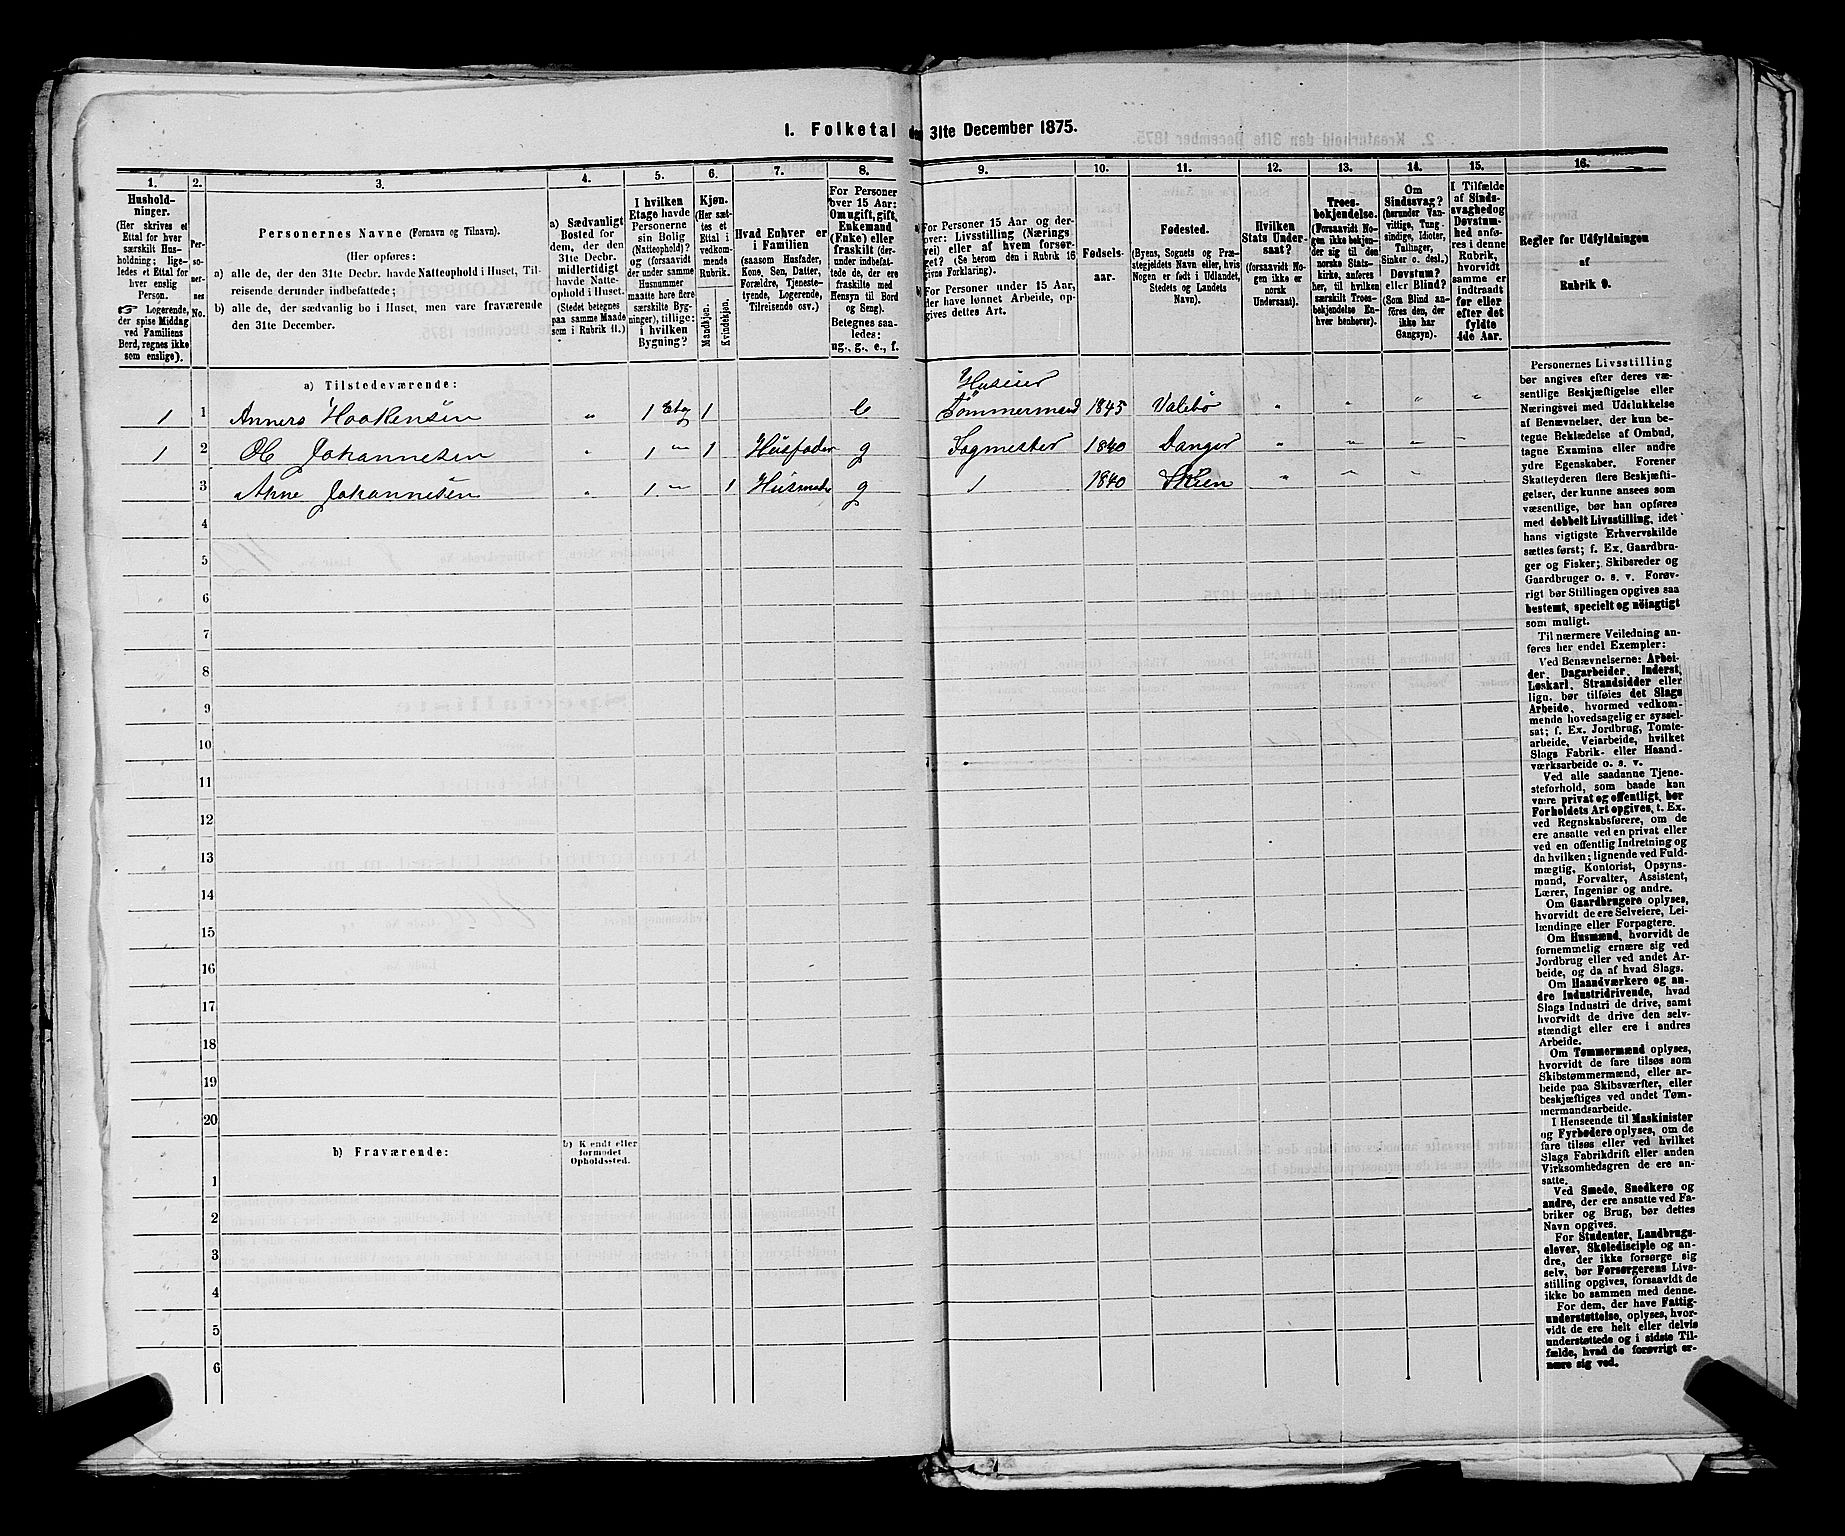 1. Folketal den 31te December 1875.
1.
2.
3.
4.
5.
6.
7.
8.
9.
10.
11.
12.
13.
14.
15.
16.
Hushold-
ninger.
(Her skrives et
Ettal for hver
særskilt Hus-
holdning; lige-
ledes et Ettal for
hver enslig
Person.
☞ Logerende,
der spise Middag
ved Familiens
Bord, regnes ikke
som enslige).
Per-
soner-
nes
No.
Personernes Navne (Fornavn og Tilnavn).
(Her opføres:
a) alle de, der den 31te Decbr. havde Natteophold i Huset, Til-
reisende derunder indbefattede;
b) alle de, der sædvanlig bo i Huset, men vare fraværende
den 31te December.
a) Sædvanligt
Bosted for
dem, der den
31te Decbr.
midlertidigt
havde Natte-
ophold i Huset.
(Stedet betegnes
paa samme Maade
som i Rubrik 11.)
I hvilken
Etage havde
Personerne
sin Bolig
(Natteophold)?
og (forsaavidt
der under samme
Husnummer
maatte høre flere
særskilte Byg-
ninger), tillige:
i hvilken
Bygning?
Kjøn.
(Her sæt-
tes et
Ettal i
vedkom-
mende
Rubrik.
Mandkjøn.
Kvindekjøn.
Hvad Enhver er
i Familien
(saasom Husfader,
Kone, Søn, Datter,
Forældre, Tjeneste-
tyende, Logerende,
Tilreisende osv.)
For Personer
over 15 Aar:
Om ugift, gift,
Enkemand
(Enke) eller
fraskilt (der-
under indbefat-
tede de, der ere
fraskilte med
Hensyn til Bord
og Seng).
Betegnes saa-
ledes:
ug., g., e., f.
a) For Personer 15 Aar og der-
over: Livsstilling (Nærings
vei) eller af hvem forsør-
get? (Se herom den i Rubrik 16
givne Forklaring).
For Personer under 15 Aar,
der have lønnet Arbeide, op-
gives dettes Art.
Fødsels-
aar.
Fødested.
(Byens, Sognets og Præ-
stegjeldets Navn eller, hvis
Nogen er født i Udlandet,
Stedets og Landets
Navn).
Hvilken
Stats Under-
saat?
(forsaavidt No-
gen ikke er
norsk
Undersaat).
Troes-
bekjendelse.
(Forsaavidt No-
gen ikke bekjen-
der sig til den
norske Stats-
kirke, anføres
her, til hvilken
særskilt Troes-
bekjendelse En-
hver henhører).
Om
Sindssvag?
(herunder Van-
vittige, Tung-
sindige, Idioter,
Tullinger,
Sinker o. desl.)
Døvstum?
eller Blind?
(Som Blind an-
føres den, der
ikke har
Gangsyn).
I Tilfælde
af Sinds-
svaghed og
Døvstum-
hed anfø-
res i denne
Rubrik,
hvorvidt
samme er
indtraadt
før eller
efter det
fyldte
4de Aar.
Regler for Udfyldningen
af
Rubrik 9.
a) Tilstedeværende:
Huseier
1 1 Anners Haakensen „ 1 Etag 1 e Tømmermand 1845 Valebø „ „ „ „
1 2 Ole Johannesen „ 1 „ 1 Husfader g Sagmester 1840 Danger „ „ „ „
3 Anne Johannesen „ 1 „ 1 Husmoder g 1 1840 Skien „ „ „
4
5
6
7
8
9
10
11
12
13
14
15
16
17
18
19
20
b) Fraværende:
b) Kjendt eller
formodet
Opholdssted.
1
2
3
4
5
6
Personernes Livsstilling
bør angives efter deres væ-
sentlige Beskjæftigelse eller
Næringsvei med Udelukkelse
af Benævnelser, der kun be-
tegne Beklædelse af Ombud,
tagne Examina eller andre
ydre Egenskaber. Forener
Skatteyderen flere Beskjæfti-
gelser, der kunne ansees som
væsentlige, bør han opføres
med dobbelt Livsstilling, idet
hans vigtigste Erhvervskilde
sættes først; f. Ex. Gaardbru-
ger og Fisker; Skibsreder og
Gaardbruger o. s. v. Forøv-
rigt bør Stillingen opgives saa
bestemt, specielt og nöiagtigt
som muligt.
Til nærmere Veiledning an-
føres her endel Exempler:
Ved Benævnelserne: Arbei-
der, Dagarbeider, Inderst,
Løskarl, Strandsidder eller
lign. bør tilføies det Slags
Arbeide, hvormed vedkom-
mende hovedsagelig er syssel-
sat; f. Ex. Jordbrug, Tomte-
arbeide, Veiarbeide, hvilket
Slags Fabrik- eller Haand-
værksarbeide o. s. v.
Ved alle saadanne Tjene-
steforhold, som baade kan
være privat og offentligt, bør
Forholdets Art opgives, t. Ex.
ved Regnskabsførere, om de
ere ansatte ved en privat eller
ved en offentlig Indretning og
da hvilken; lignende ved Fuld-
mægtig, Kontorist, Opsyns-
mand, Forvalter, Assistent,
Lærer, Ingeniør og andre.
Om Gaardbrugere oplyses,
hvorvidt de ere Selveiere, Lei-
lændinge eller Forpagtere.
Om Husmænd, hvorvidt de
fornemmelig ernære sig ved
Jordbrug eller ved andet Ar-
beide, og da af hvad Slags.
Om Haandværkere og an-
dre Industridrivende, hvad
Slags Industri de drive, samt
hvorvidt de drive den selv-
stændigt eller ere i andres
Arbeide.
Om Tømmermænd oplyses,
hvorvidt de fare tilsøs som
Skibstømmermænd, eller ar-
beide paa Skibsværfter, eller
beskjæftiges ved andet Tøm-
mermandsarbeide.
I Henseende til Maskinister
og Fyrbødere oplyses, om de
fare tilsøs eller ved hvilket
Slags Fabrikdrift eller anden
Virksomhedsgren de ere an-
satte.
Ved Smede, Snedkere og
andre, der ere ansatte ved Fa-
briker og Brug, bør dettes
Navn opgives.
For Studenter, Landbrugs-
elever, Skoledisciple og an-
dre, der ikke forsørge sig
selv, bør Forsørgerens Livs-
stilling opgives, forsaavidt de
ikke bo sammen med denne.
For dem, der have Fattig-
understøttelse, oplyses, hvor-
vidt de ere helt eller delvis
understøttede og i sidste Til-
fælde, hvad de forøvrigt er-
nære sig ved.